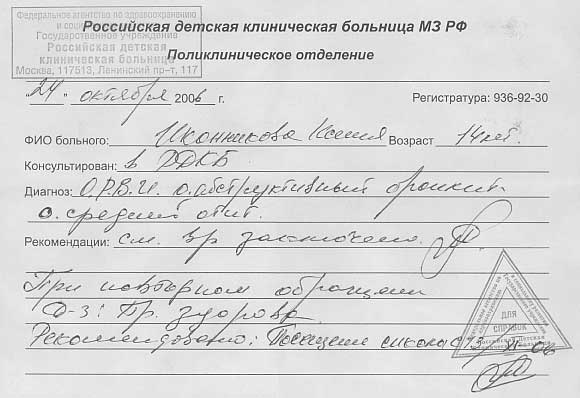 Федеральное агентство по здравоохранению
и социа
Государственное учреждение
Российская детская
клиническая больница
Москва, 117513, Ленинский пр–т, 117
Российская детская клиническая больница МЗ РФ
Поликлиническое отделение
"24" октября 2006 г.
Регистратура: 936-92-30
ФИО больного: Иконникова Ксения Возраст 14 лет.
Консультирован: в РДКБ
Диагноз: О.Р.В.И. о.обструктивный бронхит
о. средний отит.
Рекомендации: см. вр заключено.
При повторном обращении
Д-з: Пр. здорова
Рекомендовано: Посещение школы с 13/XI-06
ДЛЯ
СПРАВОК
Российская Детская